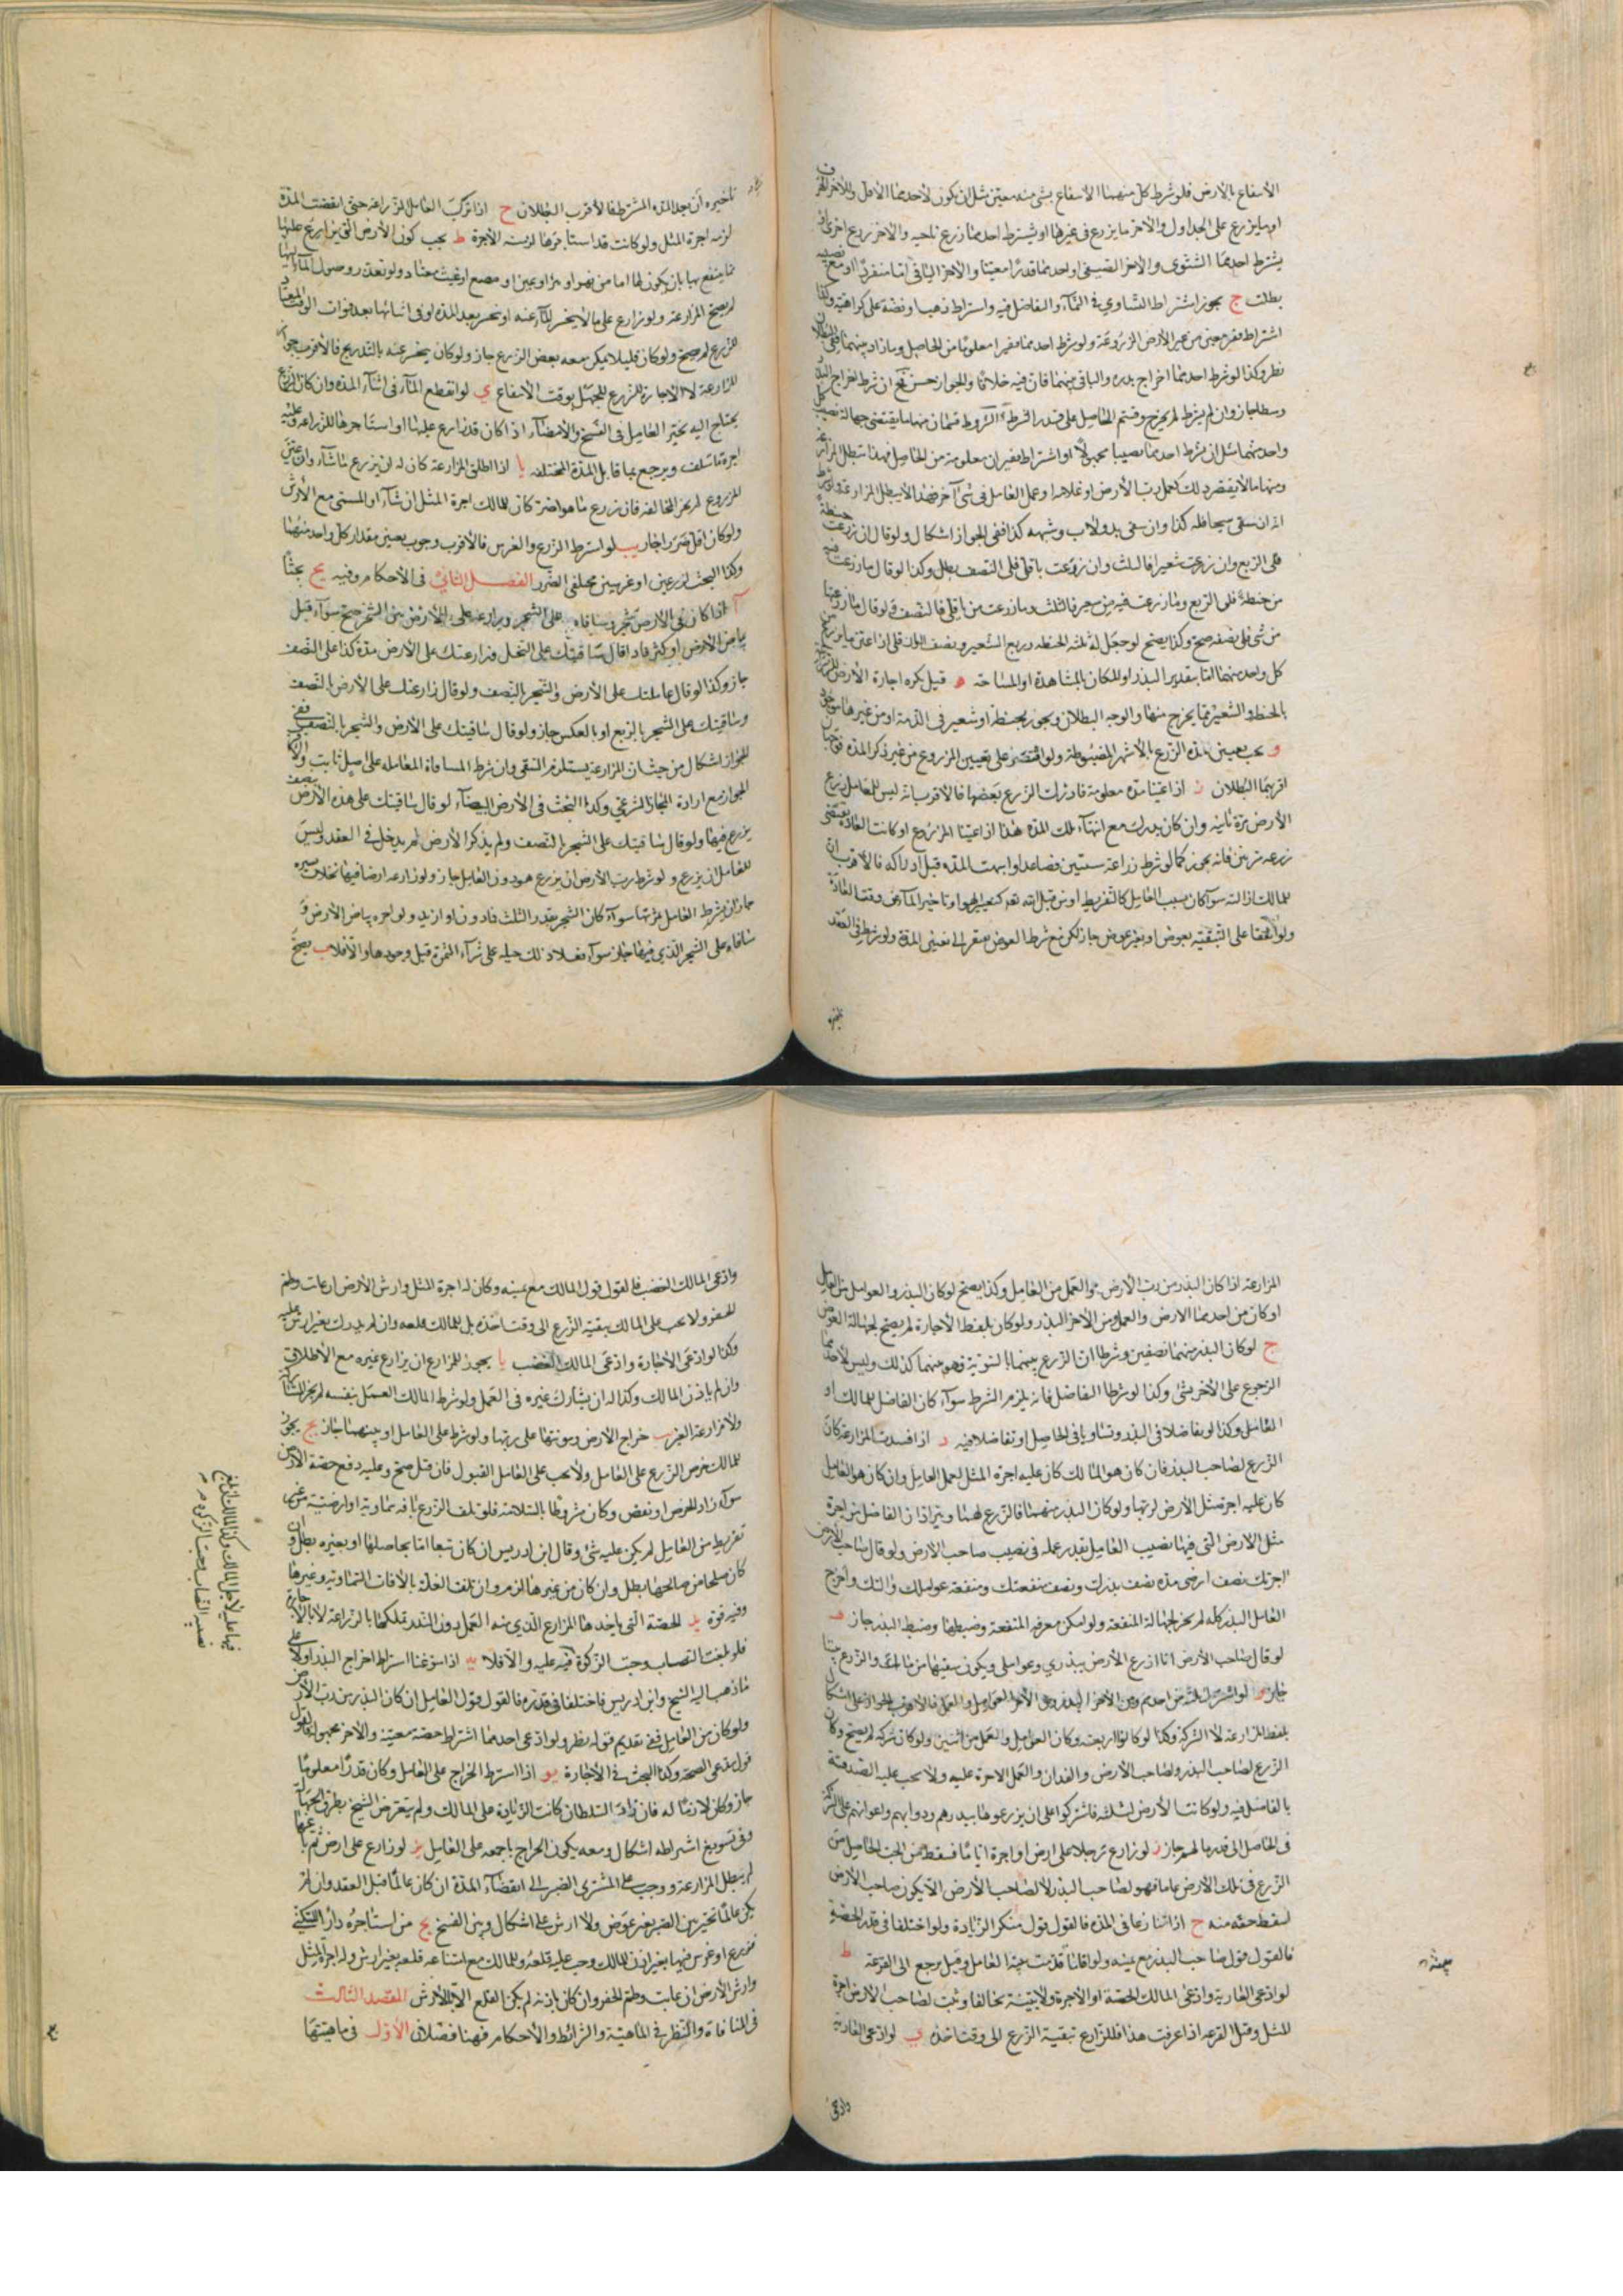 الانتفاع بالارض فلو شرط كل منهما الانتفاع بشئ منه معين مثل ان يكون لاحدهما الاول وللآخر
او ما يزرع على الجداول والآخر ما يزرع في غيرها او يشترط احدهما زرع ناحيه والآخر زرع اخرى او
يشترط احدهما الشتوى والآخر الصيفى او احدهما قدرًا معينا والآخر الباقى اما منفردًا او مع نصيبه
بطلت ج يجوز اشتراط التساوى فى النمآء والتفاضل فيه واشتراط ذهب او فضة على كراهية وكذا
اشتراط مقرحين من غير الارض المزروعة ولو شرط احدهما قفيرا معلومًا من الحاصل وما زاد بينهما ففى البطلان
نظر وكذا لو شرط احدهما اخراج بذره والباقى بينهما فان فيه خلافًا والجواز حسن فح ان شرط اخراج البذر
وسطا جاز وان لم يشترط لم يخرج وقسم الحاصل على قدر الشرط الشروط قسمان منهما ما يقتضى جهالة نصيب كل
واحد منهما مثل ان شرط احدهما نصيبا مجهولًا او اشتراط قفيران معلومة من الحاصل فهذا تبطل المزارعة
ومنها ما لا يقتضى ذلك كعمل رب الارض او غلامه او عمل العامل فى شئ آخر فهذا لا يبطل المزارعة ولو شرط
انه ان سقى سيحا فله كذا وان سقى بدولاب وشبهه كذا ففى الجواز اشكال ولو قال ان زرعت حنطة
فلى الربع وان زرعت شعيرا فالثلث وان زرعت باقلى فلى النصف بطل وكذا لو قال ما زرعت فيه
من حنطة فلى الربع وما زرعت فيه من شعير فالثلث وما زرعت من باقلى فالنصف ولو قال ما زرعتها
من شئ فلى نصفه صح وكذا يصح لو جعل له ثلث الحنطه وربع الشعير ونصف الباقلى اذا عين ما يزرع من
كل واحد منهما اما بتقدير البذر او المكان بالمشاهدة او المساحة ه قيل يكره اجارة الارض للزراعة
بالحنطة والشعير مما يخرج منها والوجه البطلان ويجوز بحنطة او شعير فى الذمة او من غيرها موجود
و يجب تعيين مدة الزرع بالاشهر المضبوطة ولو اقتصر على تعيين المزروع من غير ذكر المدة فوجهان
اقربهما البطلان ز اذا عينا مدة معلومة فادرك الزرع بعضها فالاقرب انه ليس للعامل زرع
الارض مرة ثانية وان كان يدرك مع انتهآء تلك المدة هذا اذا عينا المزروع او كانت العادة تقتضى
زرعه مرتين فانه يجوز كما لو شرط زراعة سنتين فصاعدا ولو انتهت المدة قبل ادراكه فالاقرب ان
للمالك ازالته سوآء كان بسبب العامل كالتفريط او من قبل الله تعالى كتغير الهواء او تاخير المآء عن وقت العادة
ولو اتفقا على التبقية بعوض او بغير عوض جاز لكن مع شرط العوض يفتقر الى تعيين المدة ولو شرط فى العقد
تاخيره
تاخيره ان بعد المدة المشترطة فالاقرب البطلان ح اذا ترك العامل المزارعة حتى انقضت المدة
لزمه اجرة المثل ولو كانت قد استاجرها لزمته الاجرة ط يجب كون الارض التى يزارع عليها
مما ينتفع بها بان يكون لها اما من نهر او بئر او عين او مصنع او غيث معتاد ولو تعذر وصول المآء اليها
لم يصح المزارعة ولو زارع على ما لا ينحسر المآء عنه او ينحسر بعد المدة او فى اثنائها بعد فوات الوقت المعتاد
للزرع لم يصح ولو كان قليلا يمكن معه بعض الزرع جاز ولو كان ينحسر عنه بالتدريج فالاقرب جواز
المزارعة لا الاجارة للزرع للجهل بوقت الانتفاع ي لو انقطع المآء فى اثنآء المدة وان كان الزرع
يحتاج اليه تخير العامل فى الفسخ والامضآء اذا كان قد زارع عليها او استاجرها للزراعة وعليه
اجرة ما سلف ويرجع بما قابل المدة المختلفه يا اذا اطلق المزارعة كان له ان يزرع ما شآء وان عين
المزروع لم يجز المخالفة فان زرع ما هو اضر كان للمالك اجرة المثل ان شآء او المسمى مع الارش
ولو كان اقل ضررا جاز يب لو اشترط الزرع والغرس فالاقرب وجوب تعيين مقدار كل واحد منهما
وكذا البحث لزرعين او غرسين مختلفى الضرر الفصل الثانى فى الاحكام وفيه يح بحثا
آ اذا كان فى الارض شجر وساقاه على الشجر وزارعه على الارض بين الشجر صح سوآء قبل
بياض الارض او كثر فاذا قال ساقيتك على النخل وزارعتك على الارض مدة كذا على النصف
جاز وكذا لو قال عاملتك على الارض والشجر بالنصف ولو قال زارعتك على الارض بالنصف
وساقيتك على الشجر بالربع او بالعكس جاز ولو قال ساقيتك على الارض والشجر بالنصف ففى
الجواز اشكال من حيث ان المزارعة يستلزم السقى وان شرط المساقاة المعاملة على اصل ثابت والاقرب
الجواز مع ارادة المجاز الشرعى وكذا البحث فى الارض البيضآء لو قال ساقيتك على هذه الارض بنصف
يزرع فيها ولو قال ساقيتك على الشجر بالنصف ولم يذكر الارض لم يدخل فى العقد وليس
للعامل ان يزرع ولو شرط رب الارض ان يزرع هو دون العامل جاز ولو زارعه ارضا فيها نخلات يسيره
جاز ان يشرط العامل ثمرتها سوآء كان الشجر بقدر الثلث فادون او ازيد ولو اجره بياض الارض و
ساقاه على الشجر الذى فيها جاز سوآء فعلا ذلك حيلة على شرآء الثمرة قبل وجودها او لا فلا ب يصح
المزارعة اذا كان البذر من رب الارض والعمل من العامل وكذا يصح لو كان البذر والعوامل من العامل
او كان من احدهما الارض والعمل ومن الآخر البذر ولو كان بلفظ الاجارة لم يصح لجهالة العوض
ج لو كان البذر بينهما نصفين وشرطا ان الزرع بينهما بالسوية فهو بينهما كذلك وليس لاحدهما
الرجوع على الآخر بشئ وكذا لو شرطا التفاضل فانه يلزم الشرط سوآء كان الفاضل للمالك او
العامل وكذا لو تفاضلا فى البذر وتساويا فى الحاصل او تفاضلا فيه د اذا فسدت المزارعة كان
الزرع لصاحب البذر فان كان هو المالك كان عليه اجرة المثل لعمل العامل وان كان هو العامل
كان عليه اجرة مثل الارض لربها ولو كان البذر منهما فالزرع لهما ويترادان الفاضل من اجرة
مثل الارض التى فيها نصيب العامل بقدر عمله فى نصيب صاحب الارض ولو قال صاحب الارض
اجرتك نصف ارضى مدة نصف بذرك ونصف منفعتك ومنفعة عواملك والتك واخرج
العامل البذر كله لم يجز لجهالة المنفعة ولو امكن معرفة المنفعة وضبطها وضبط البذر جاز ه
لو قال صاحب الارض انا ازرع الارض ببذرى وعواملى ويكون سقيها من مالك والزرع بيننا
جاز و لو اشترك ثلثة من احدهم ومن الآخر البذر ومن الآخر العوامل والعمل فالاقرب الجواز على اشكال
بلفظ المزارعة لا الشركة وكذا لو كانوا اربعة وكان العوامل والعمل من اثنين ولو كان شركة لم يصح وكان
الزرع لصاحب البذر ولصاحب الارض والفدان والعمل الاجرة عليه ولا يجب عليه الصدقة
بالفاضل فيه ولو كانت الارض لثلثة فاشتركوا على ان يزرعوها ببذرهم ودوابهم واعوانهم على الشركة
فى الحاصل الى قدر مالهم جاز ز لو زارع رجلا على ارض او اجره اياما فسقط من الحب الحاصل من
الزرع فى تلك الارض عاما فهو لصاحب البذر لا لصاحب الارض الا يكون صاحب الارض
اسقط حقه منه ح اذا تنازعا فى المدة فالقول قول منكر الزيادة ولو اختلفا فى قدر الحصة
فالقول قول صاحب البذر مع يمينه ولو اقاما قدمت بينة العامل وقيل يرجع الى القرعة ط
لو ادعى العارية وادعى المالك الحصة او الاجرة ولا بينة تحالفا وثبت لصاحب الارض اجرة
المثل وقيل القرعة اذا عرفت هذا فللزارع تبقية الزرع الى وقت اخذه ي لو ادعى العارية
وادعى
وادعى المالك الغضب فالقول قول المالك مع يمينه وكان له اجرة المثل وارش الارض ان عابت وطم
الحفر ولا يجب على المالك تبقية الزرع الى وقت اخذه بل للمالك قلعه وان لم يدرك بغير ارش عليه
وكذا لو ادعى الاجارة وادعى المالك الغضب يا يجوز للمزارع ان يزارع غيره مع الاطلاق
وان لم ياذن المالك وكذا له ان يشارك غيره فى العمل ولو شرط المالك العمل بنفسه لم يجز المشاركة
ولا مزارعة الغير يب خراج الارض ومونتها على ربها ولو شرط على العامل او بينهما جاز يج يجوز
للمالك خرص الزرع على العامل ولا يجب على العامل القبول فان قبل صح وعليه دفع حصة الارض
سوآء زاد الخرص او نقص وكان مشروطًا بالسلامة فلو تلف الزرع بافة سماوية او ارضية من غير
تفريط من العامل لم يكن عليه شئ وقال ابن ادريس ان كان بيعا اما بحاصلها او بغيره بطل وان
كان صلحا من صالحها بطل وان كان من غيرها لزم وان تلفت الغلة بالآفات السماوية وغيرها
وفيه قوة يد الحصة التى ياخذها المزارع الذى منه العمل دون البذر تملكها بالزراعة لا بالاجارة
فلو بلغت النصاب وجبت الزكوة فيه عليه والا فلا يه اذا سوغنا اشتراط اخراج البذر اولا على
ما ذهب اليه الشيخ وابن ادريس فاختلفا فى قدره فالقول قول العامل ان كان البذر من رب الارض
ولو كان من العامل ففى تقديم قوله نظر ولو ادعى احدهما اشتراط حصة معينة والآخر مجهولة فالقول
قول مدعى الصحة وكذا البحث فى الاجارة يو اذا اشترط الخراج على العامل وكان قدرًا معلومًا
جاز وكان لازمًا له فان زاد السلطان كانت الزيادة على المالك ولم يتعرض الشيخ بطرق الجهالة
وفى تسويغ اشتراطه اشكال ومعه يكون الخراج باجمعه على العامل يز لو زارع على ارض ثم باعها
لم يبطل المزارعة ووجب على المشترى الصبر الى انقضآء المدة ان كان عالمًا قبل العقد وان لم
يكن عالمًا تخير بين الصبر بغير عوض ولا ارش على اشكال وبين الفسخ يح من استاجر دارًا للسكنى
فزرع او غرس فيها بغير اذن المالك وجب عليه قلعه وللمالك مع امتناعه قلعه بغير ارش وله اجرة المثل
وارش الارض ان عابت وطم الحفر وان كان باذنه لم يكن القلع الا بالارش المقصد الثالث
فى المساقاة والنظر فى الماهية والشرائط والاحكام فهنا فصلان الاول فى ماهيتها
فيها عليه لاجل المالك وكذا المالك ان بلغ
نصيبه النصاب وجبت الزكوة